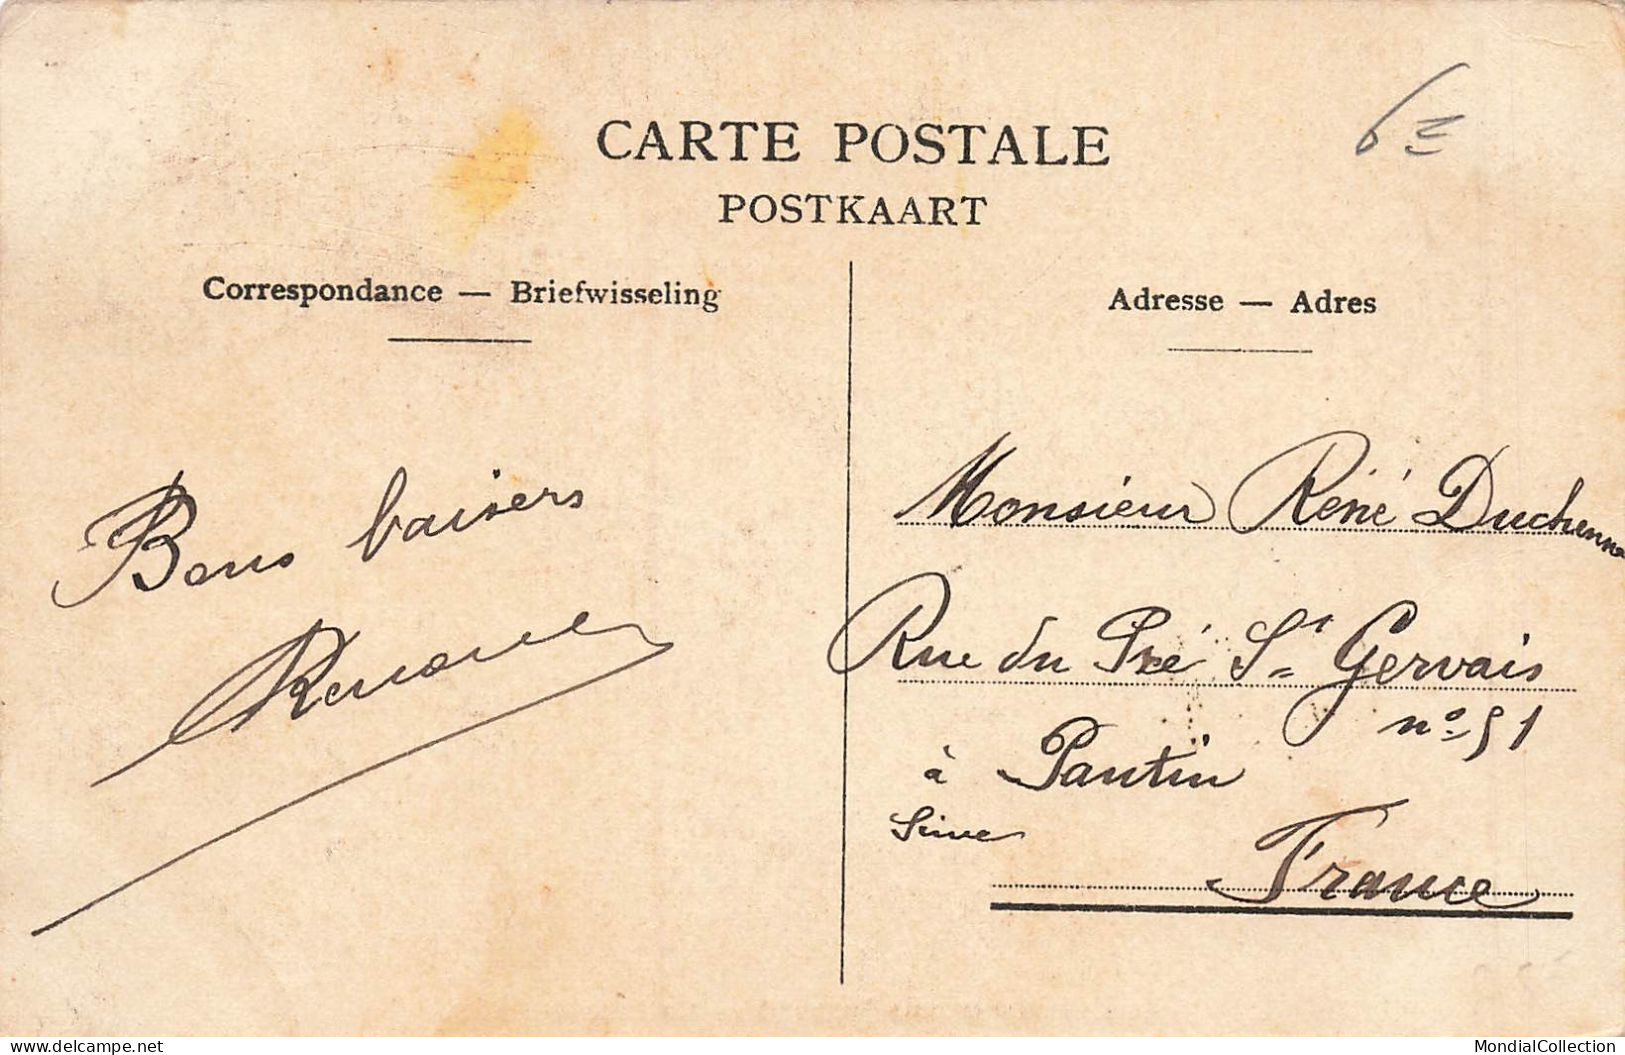 CARTE POSTALE
POSTKAART
6 =
Correspondance — Briefwisseling
Adresse — Adres
Bons baisers
Monsieur Réné Duchenne
Rue du Pré St Gervais
no 51
à Pantin
Seine
France
www.delcampe.net
MondialCollection